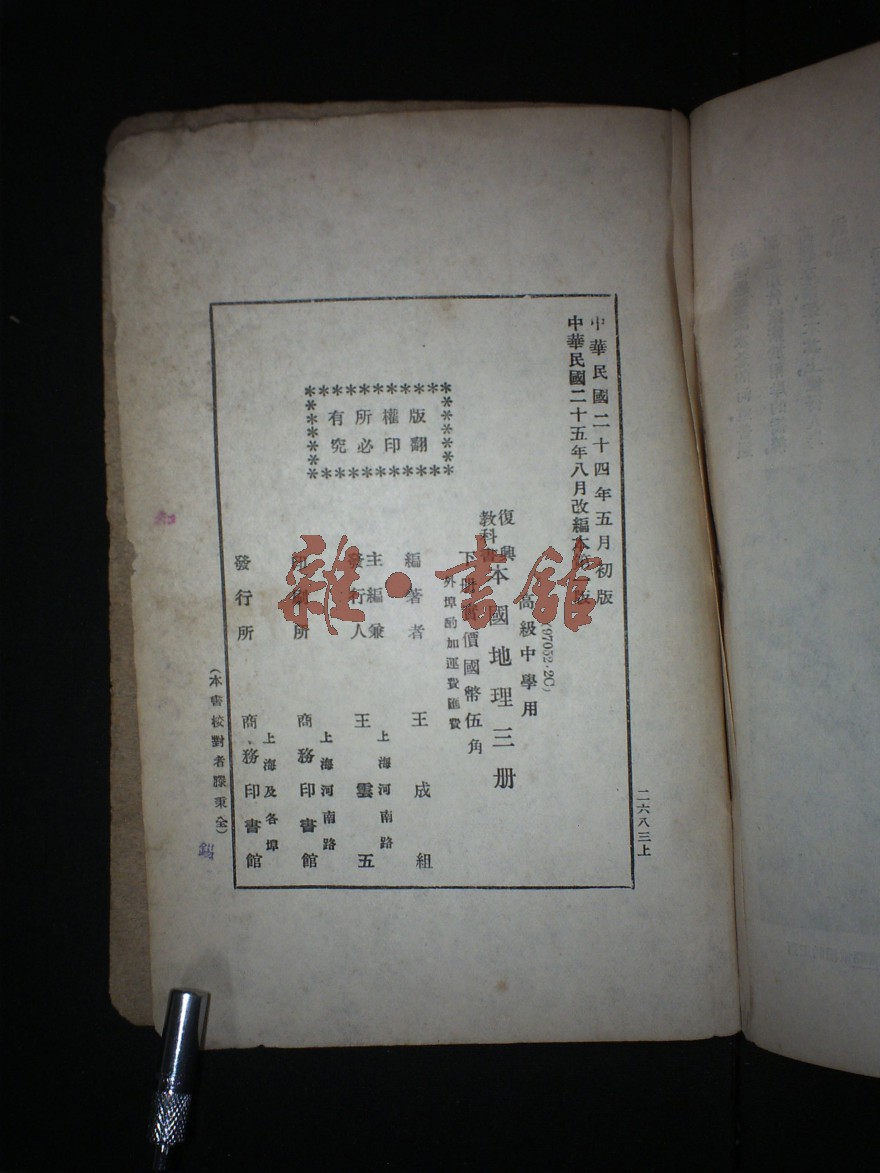 中華民國二十四年五月初版
中華民國二十五年八月改編本第一版
(97052·2C)
高級中學用
復興
教科書
本國地理三册
下册實價國幣伍角
外埠酌加運費匯費
版權所有
翻印必究
編著者 王成組
主編兼
發行人 王雲五
上海河南路
印刷所 商務印書館
上海河南路
發行所 商務印書館
上海及各埠
(本書校對者滕秉全)
二六八三上
雜·書館